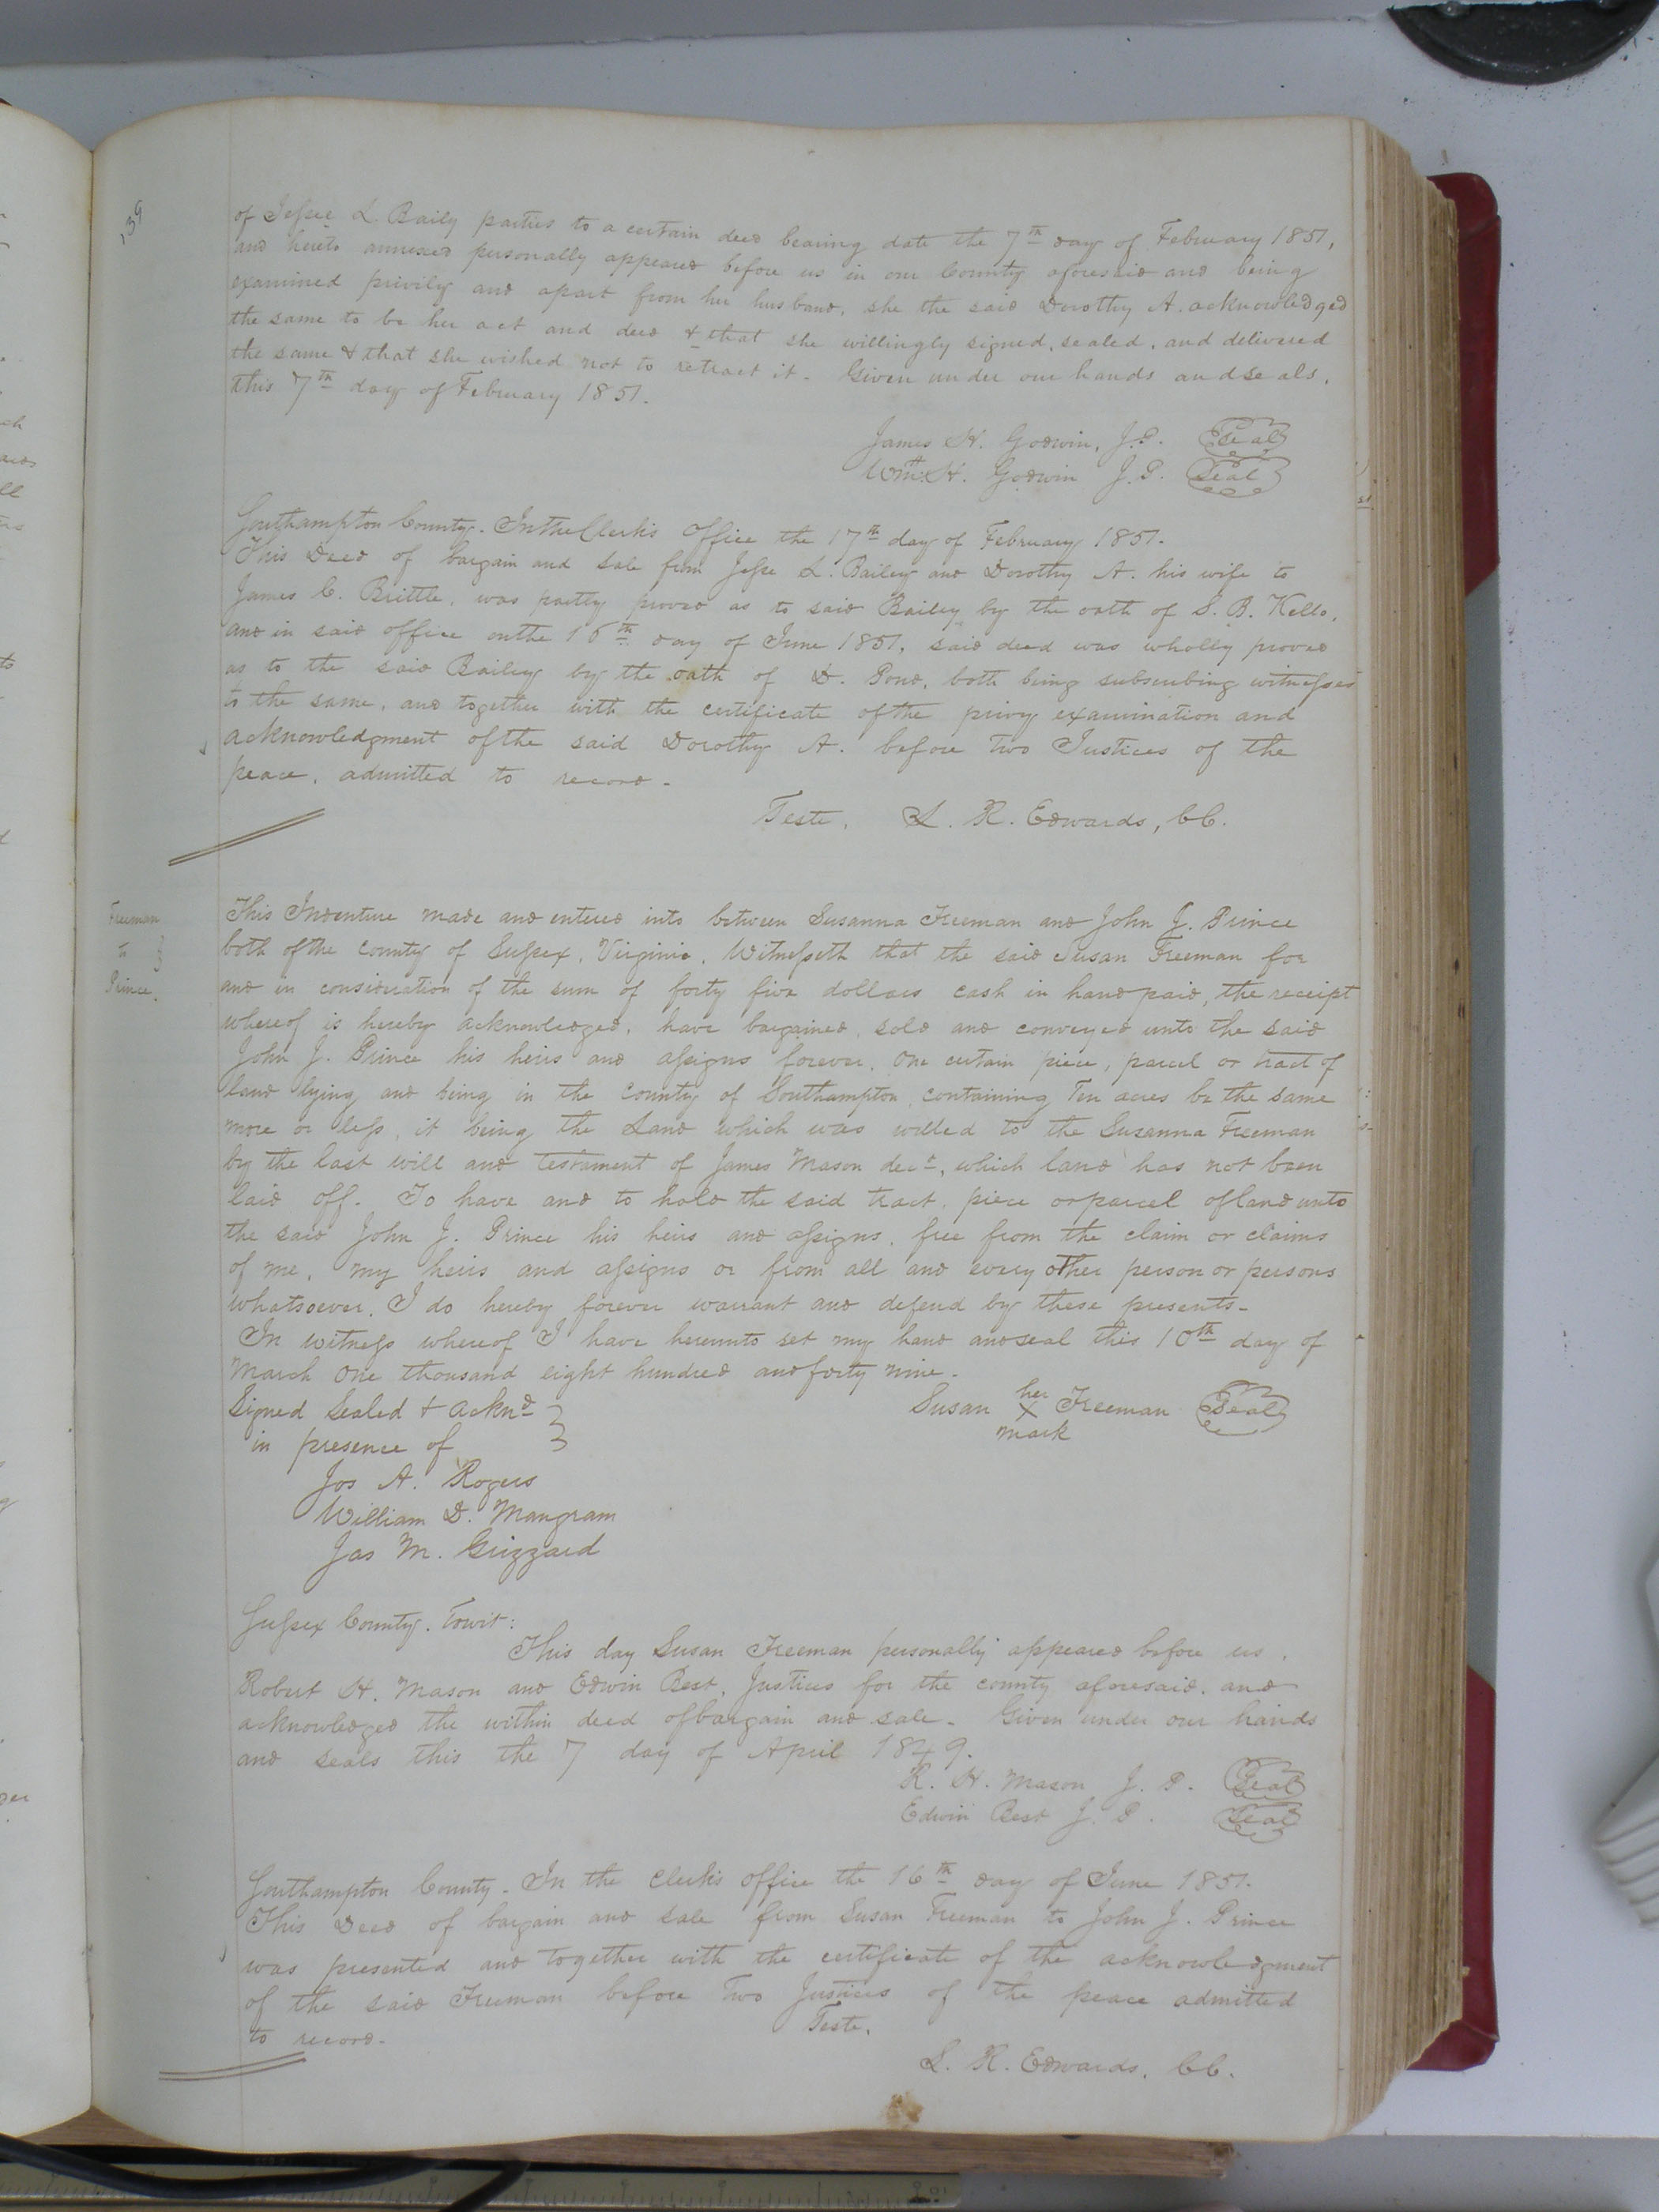 139
of Jessee L. Baily parties to a certain deed bearing date the 7th day of February 1851,
and hereto annexed personally appeared before us in our County aforesaid and being
examined privily and apart from her husband, she the said Dorothy A. acknowledged
the same to be her act and deed & that she willingly signed, sealed, and delivered
the same & that she wished not to retract it. Given under our hands and seals,
this 7th day of February 1851.
James H. Godwin, J.P. Seal
Wm. H. Godwin J.P. Seal
Southampton County. In the Clerk's Office the 17th day of February 1851.
This Deed of bargain and sale from Jesse L. Bailey and Dorothy A. his wife to
James C. Brittle, was partly proved as to said Bailey by the oath of S. B. Kello,
and in said office on the 16th day of June 1851, said deed was wholly proved
as to the said Bailey by the oath of D. Pond, both being subscribing witnesses
to the same, and together with the certificate of the privy examination and
acknowledgment of the said Dorothy A. before two Justices of the
peace, admitted to record.
Teste, L. R. Edwards, CC.
Freeman
to
Prince.
This Indenture made and entered into between Susanna Freeman and John J. Prince
both of the county of Sussex, Virginia, Witnesseth that the said Susan Freeman for
and in consideration of the sum of forty five dollars cash in hand paid, the receipt
whereof is hereby acknowledged, have bargained, sold and conveyed unto the said
John J. Prince his heirs and assigns forever, one certain piece, parcel or tract of
land lying and being in the county of Southampton containing Ten acres be the same
more or less, it being the Land which was willed to the Susanna Freeman
by the last will and testament of James Mason decd, which land has not been
laid off. To have and to hold the said tract, piece or parcel of land unto
the said John J. Prince his heirs and assigns, free from the claim or claims
of me, my heirs and assigns or from all and every other person or persons
whatsoever. I do hereby forever warrant and defend by these presents.
In witness whereof I have hereunto set my hand and seal this 10th day of
March One thousand eight hundred and forty nine.
Signed Sealed & acknd
in presence of
Susan her X mark Freeman Seal
Jos A. Rogers
William D. Mangram
Jas M. Grizzard
Sussex County. Towit:
This day Susan Freeman personally appeared before us,
Robert H. Mason and Edwin Best, Justices for the county aforesaid, and
acknowledged the within deed of bargain and sale. Given under our hands
and seals this the 7 day of April 1849.
R. H. Mason J. P. Seal
Edwin Best J. P. Seal
Southampton County. In the Clerk's office the 16th day of June 1851.
This Deed of bargain and sale from Susan Freeman to John J. Prince
was presented and together with the certificate of the acknowledgment
of the said Freeman before two Justices of the peace admitted
to record.
Teste,
L. R. Edwards, CC.